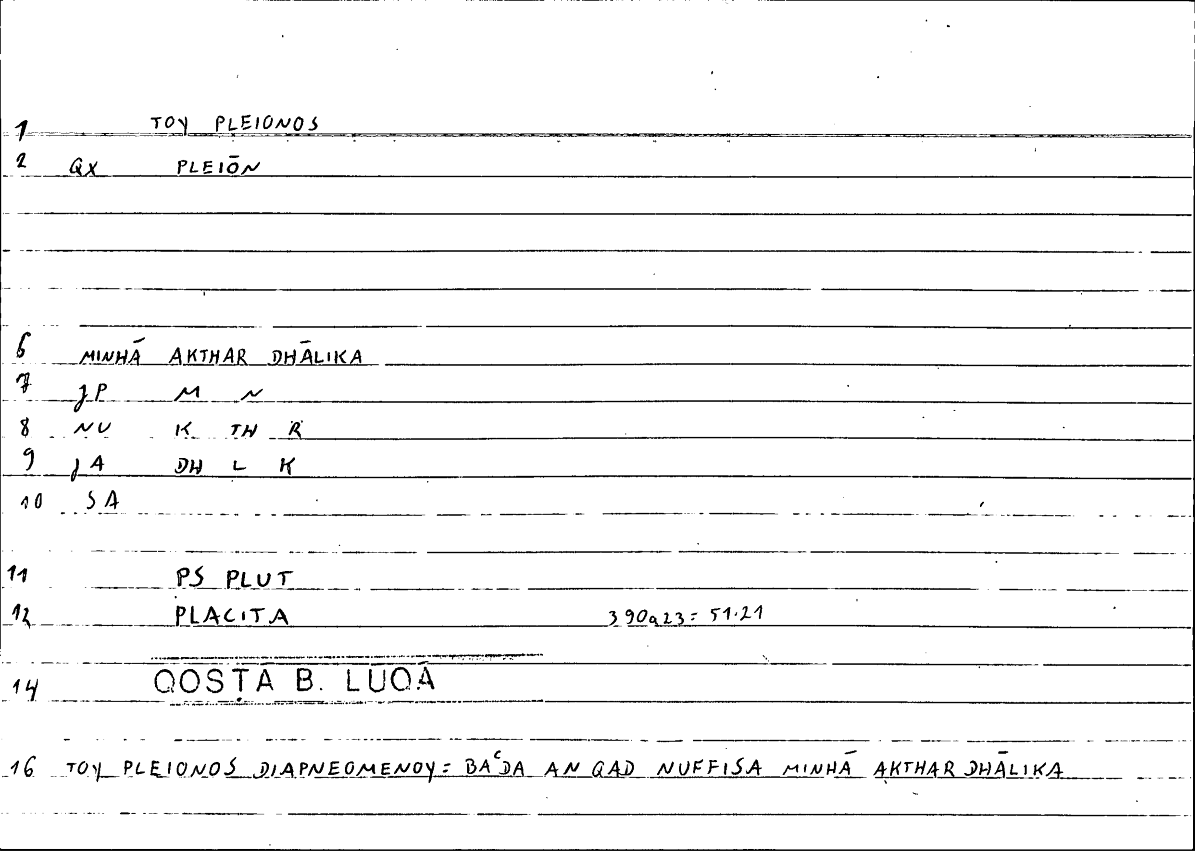 1 TOY PLEIONOS
2 QX PLEIŌN
6 MINHĀ AKTHAR DHĀLIKA
7 JP M N
8 NU K TH R
9 JA DH L K
10 SA
11 PS PLUT
12 PLACITA 390a23=51.21
14 QOSṬĀ B. LUQĀ
16 TOY PLEIONOS DIAPNEOMENOY = BAʿDA AN QAD NUFFISA MINHĀ AKTHAR DHĀLIKA